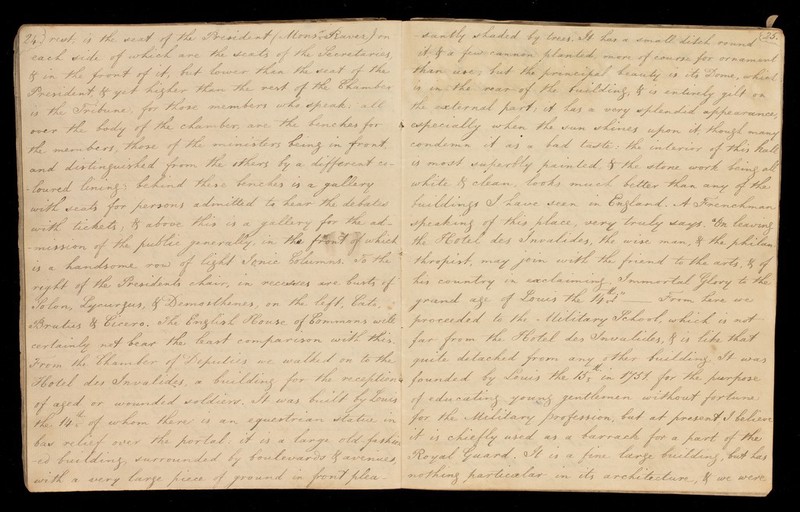 24) rest, is the seat of the President (Monsr. Ravez) on
each side of which are the seats of the Secretaries
& in the front of it, but lower than the seat of the
President, & yet higher than the rest of the Chamber
is the Tribune, for those members who speak; all
over the body of the chamber, are the benches for
the members, those of the ministers being in front
and distinguished from the others by a different co-
-loured lining; behind these benches is a gallery
with seats for persons admitted to hear the debates
with tickets, & above this is a gallery for the ad-
-mission of the public generally, in the front of which
is a handsome row of light Ionic Columns. To the
right of the Presidents chair, in recesses are busts of
Solon, Lycurgus, & Demosthenes, on the left, Cato,
Brutus & Cicero. The English House of Commons will
certainly not bear the least comparison with this.
From the Chamber of Deputies we walked on to the
Hotel des Invalides, a building for the reception
of aged or wounded soldiers. It was built by Louis
the 14th. of whom there is an equestrian statue in
bas relief over the portal; it is a large old fashion
-ed building, surrounded by boulevards & avenues,
with a very large piece of ground in front plea-
(25)
-santly shaded by trees. It has a small ditch round
it & a few cannon planted more of course for ornament
than use; but the principal beauty is its Dome, which
is in the rear of the building, & is entirely gilt on
the external part; it has a very splendid appearance,
especially when the sun shines upon it, though many
condemn it as a bad taste; the interior of this hall
is most superbly painted & the stone work being all
white & clean, looks much better than any of the
buildings I have seen in England. A Frenchman
speaking of this place, very truly says, "On leaving
the Hotel des Invalides, the wise man, & the philan
thropist, may join with the friend to the arts, & of
his country in exclaiming, Immortal Glory to the
grand age of Louis the 14th" — From here we
proceeded to the Military School, which is not
far from the Hotel des Invalides, & is like that
quite detached from any other building. It was
founded by Louis the 15th, in 1751 for the purpose
of educating young gentlemen without fortune
for the Military profession, but at present I believe
it is chiefly used as a barrack for a part of the
Royal Guard. It is a fine large building, but has
nothing particular in its architecture, & we were